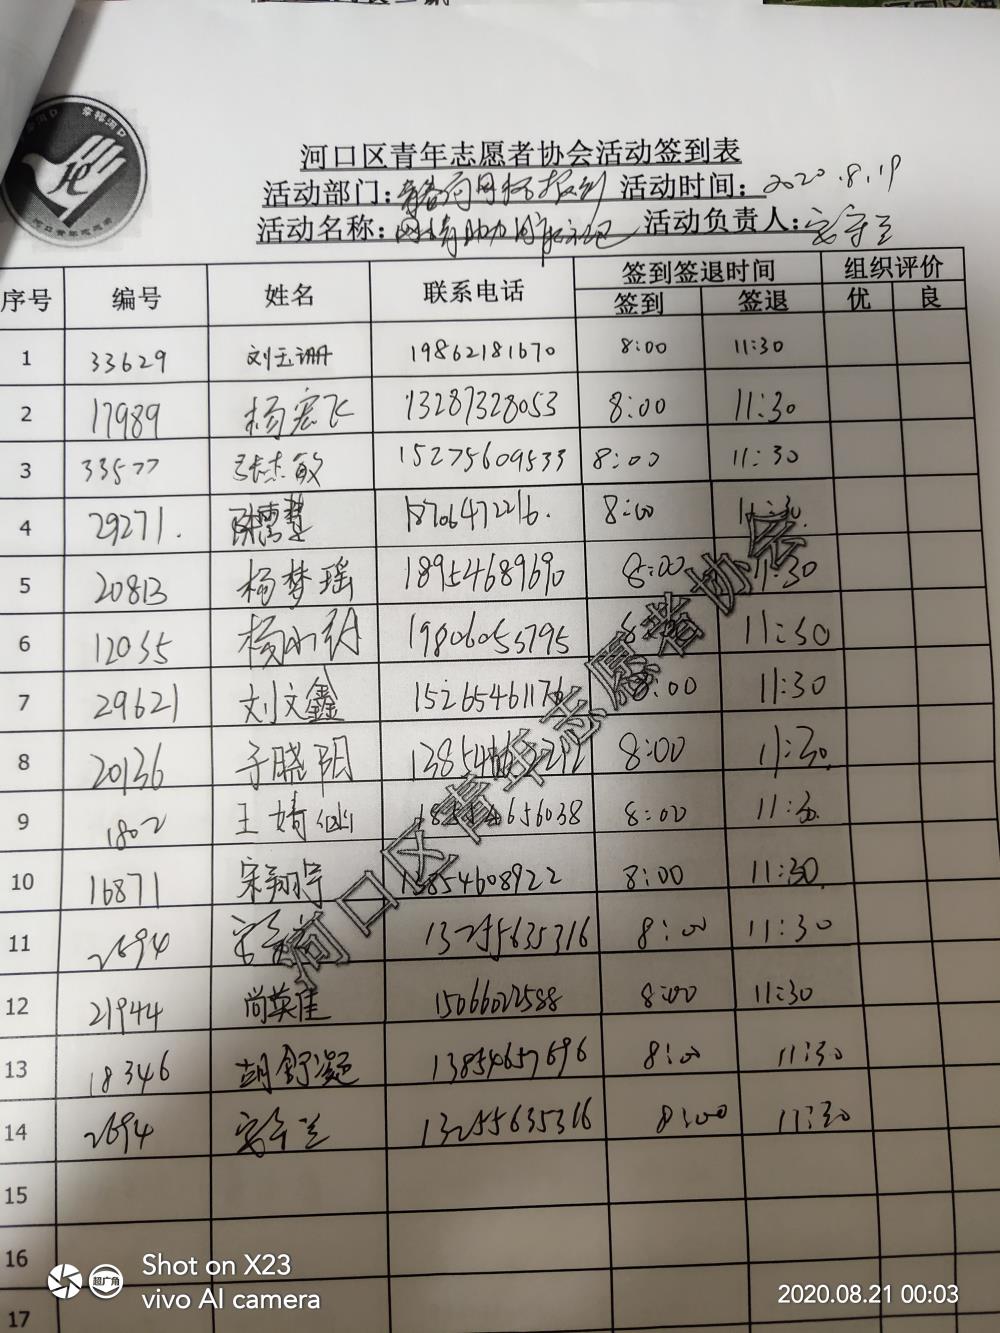 河口区青年志愿者协会活动签到表
活动部门: 活动时间: 2020.8.19
活动名称: 活动负责人:
序号 编号 姓名 联系电话 签到签退时间 组织评价
签到 签退 优 良
1 33629 刘玉珊 19862181670 8:00 11:30
2 17989 杨宏飞 13287328053 8:00 11:30
3 33577 张志敏 15275609533 8:00 11:30
4 29271. 18706472216. 8:00 11:30
5 20813 杨梦瑶 18954689690 8:00 11:30
6 12035 19806053795 8:00 11:30
7 29621 刘文鑫 15265461176 8:00 11:30
8 20136 于晓阳 8:00 11:30
9 1802 王婧仙 8:00 11:30
10 16871 宋翔宇 13854608922 8:00 11:30
11 2694 13255635316 8:00 11:30
12 21944 尚英佳 15066022588 8:00 11:30
13 18346 胡舒凝 13854657696 8:00 11:30
14 2694 13255635316 8:00 11:30
15
16
17
河口区青年志愿者协会
河口青年志愿者
Shot on X23
超广角
vivo AI camera
2020.08.21 00:03